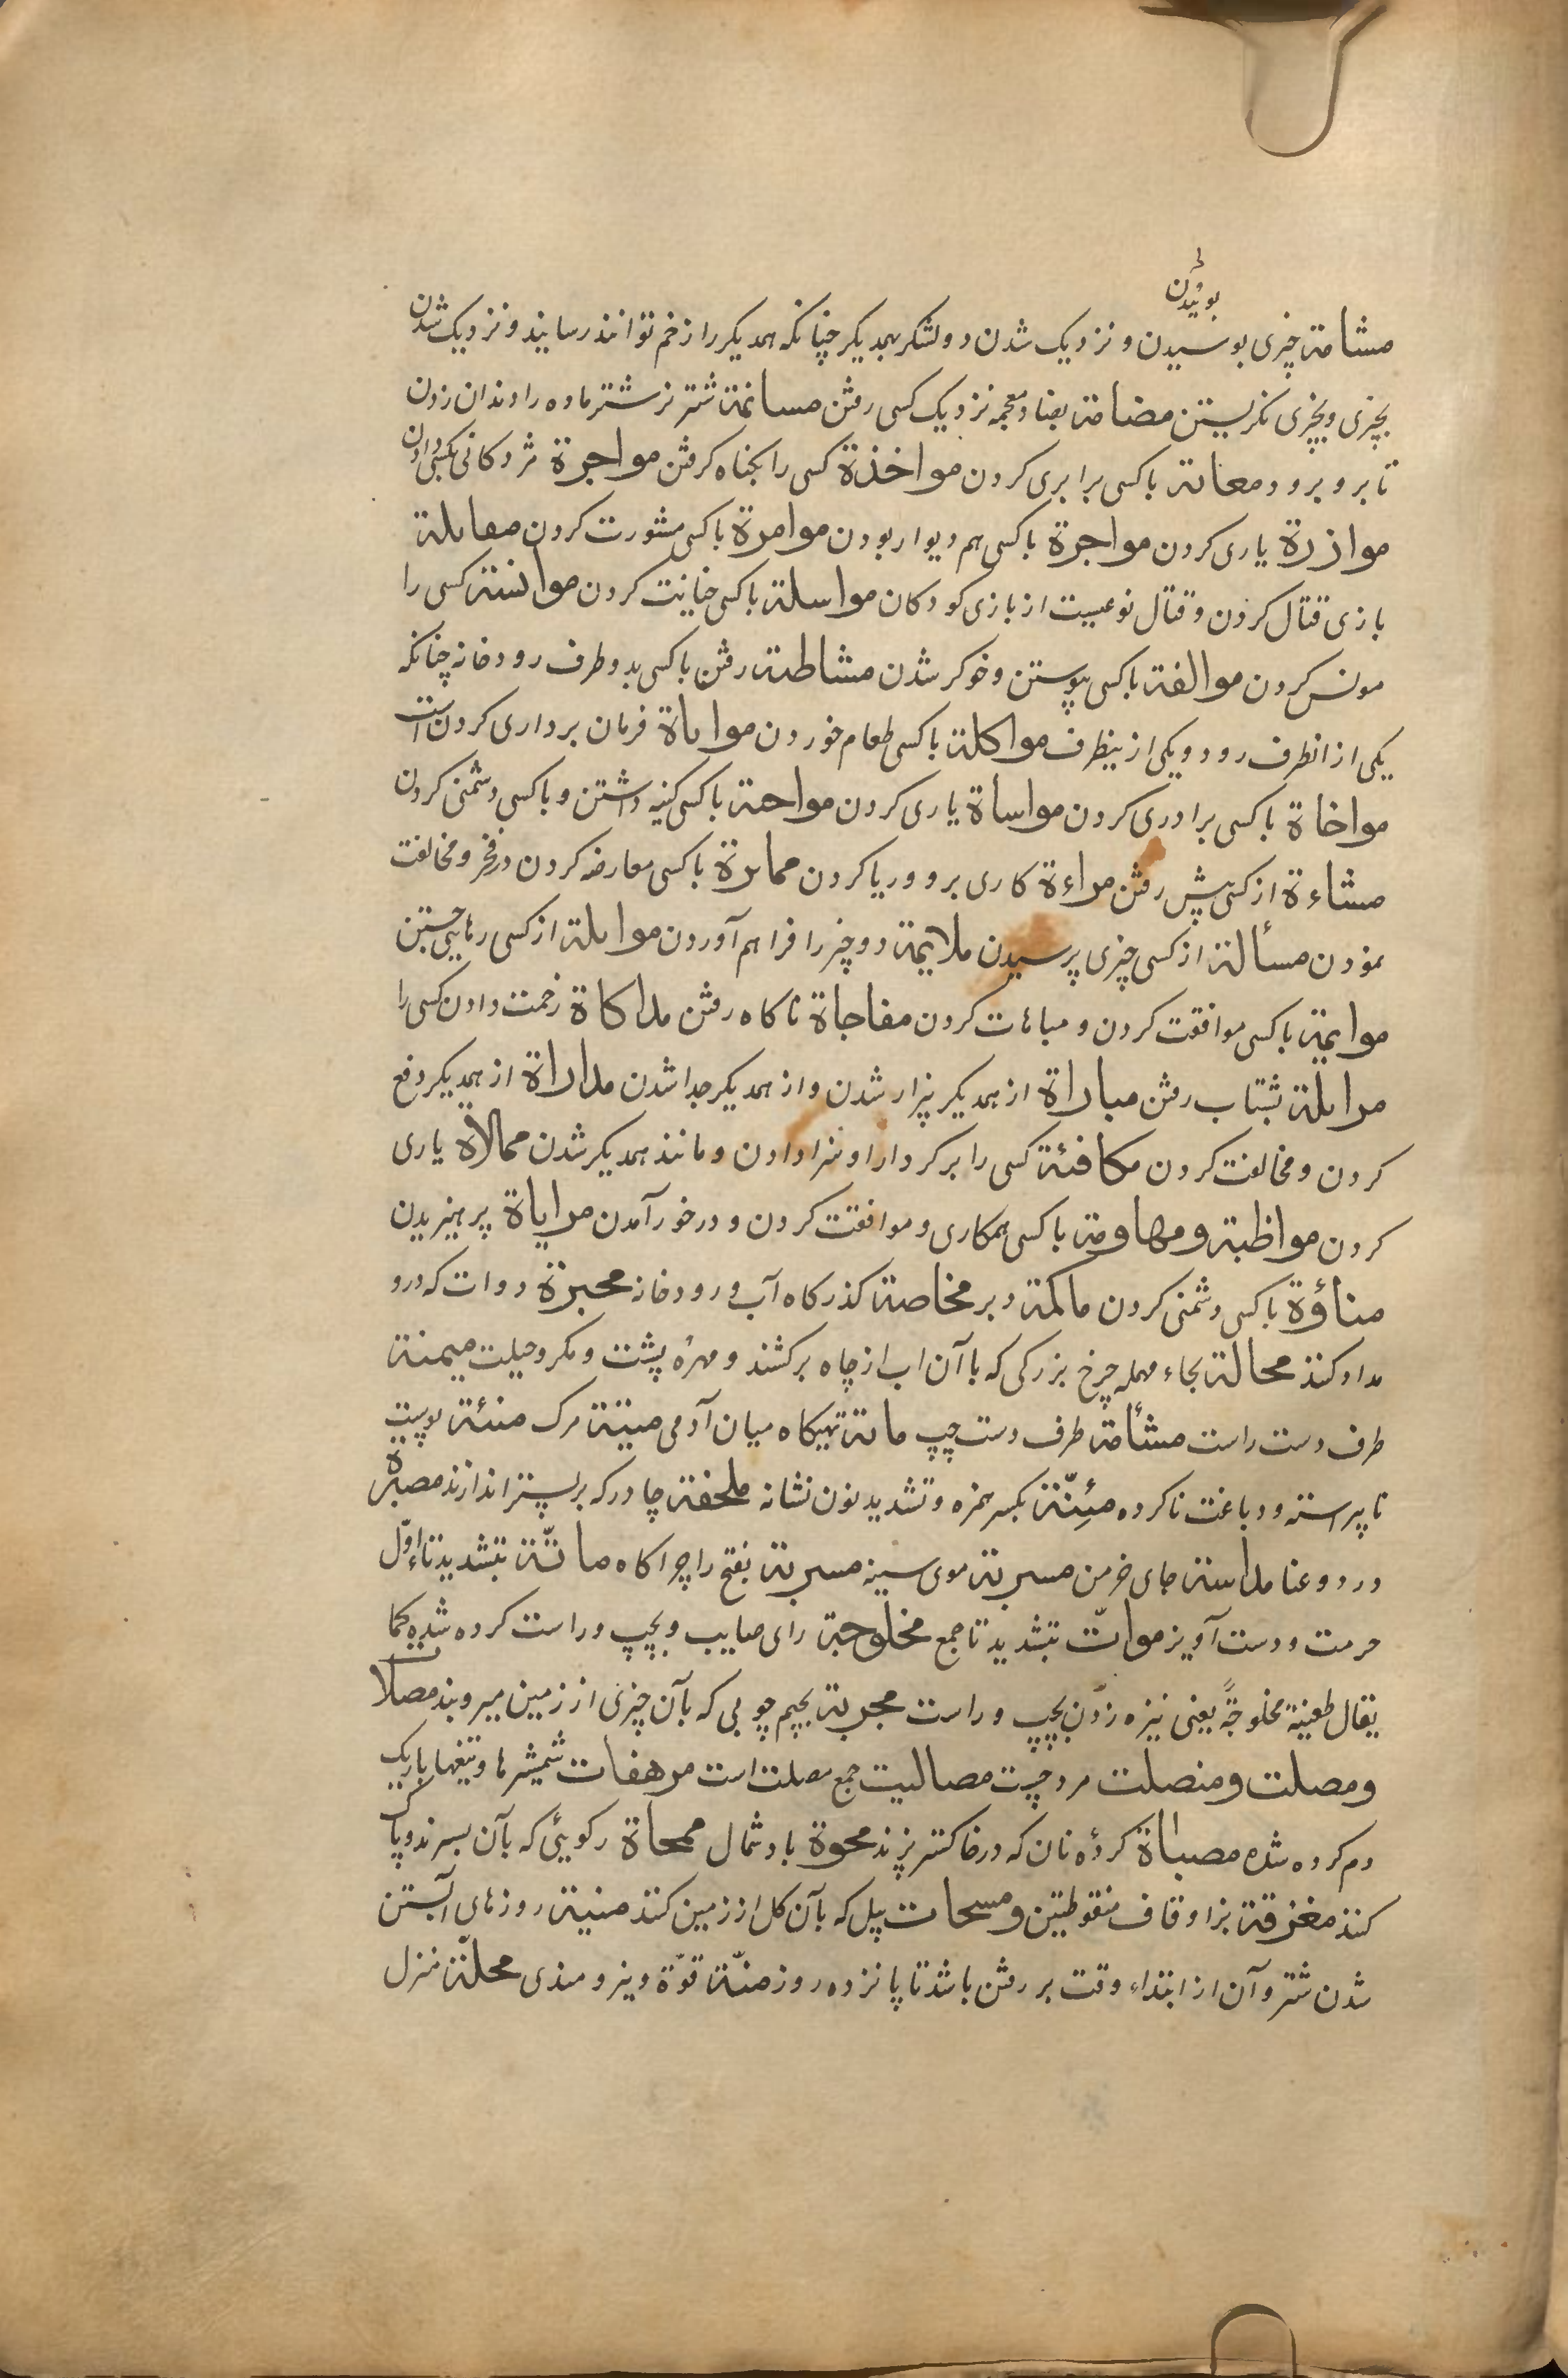 بوئیدن
مشامة چیزی بوسیدن و نزدیک شدن دو لشکر بهمدیکر چنانکه همدیکر را زخم توانند رسانید و نزدیک شدن
بچیزی و بچیزی نکریستن مضامة بضاد معجمه نزدیک کسی رفتن مسانمة شتر نر شتر ماده را دندان زدن
تا برو برود معانة با کسی برابری کردن مواخذة کسی را بکناه کرفتن مواجرة مزدکانی بکسی دادن
موازرة یاری کردن مواجرة با کسی هم دیوار بودن موامرة با کسی مشورت کردن مفایلة
بازی قتال کردن و قتال نوعیست از بازی کودکان مواسلة با کسی خیانت کردن موانسة کسی را
مونس کردن موالفة با کسی پیوستن و خوکر شدن مشاطة رفتن با کسی بدو طرف رودخانه چنانکه
یکی از انطرف رود و یکی از ینطرف مواکلة با کسی طعام خوردن مواتاة فرمان برداری کردن است
مواخاة با کسی برادری کردن مواساة یاری کردن مواحنة با کسی کینه داشتن و با کسی دشمنی کردن
مشاءة از کسی پیش رفتن مراءة کاری برو و ریا کردن مماىرة با کسی معارضه کردن در فخر و مخالفت
نمودن مسألة از کسی چیزی پرسیدن ملایمة دو چیز را فراهم آوردن مواىلة از کسی رهایی جستن
موایمة با کسی موافقت کردن و مباهات کردن مفاجاة ناکاه رفتن مداکاة زحمت دادن کسی را
مراىلة بشتاب رفتن مباراة از همدیکر بیزار شدن و از همدیکر جدا شدن مداراة از همدیکر دفع
کردن و مخالفت کردن مکافئة کسی را بر کردار او سزا دادن و مانند همدیکر شدن ممالاة یاری
کردن مواظبة و مهاومة با کسی همکاری و موافقت کردن و درخور آمدن مرایاة پرهیزیدن
مناؤة با کسی دشمنی کردن ماکمة دبر مخاصة کذرکاه آب و رودخانه محبرة دوات که درو
مداد کنند محالة بحاء مهمله چرخ بزرکی که با آن اب از چاه برکشند و مهرهٔ پشت و مکر و حیلت میمنة
طرف دست راست مشأمة طرف دست چپ مانة تهیکاه میان آدمی میتة مرک منئة پوست
ناپیراسته و دباغت ناکرده مئنّة بکسر همزه و تشدید نون نشانه ملحفة چادر که بر بستر اندازند مصبرة
درد و عنا مداسة جای خرمن مسربة موی سینه مسربة بفتح را چراکاه ماتّة بتشدید تاء اوّل
حرمت و دست آویز مواتّ بتشدید تا جمع مخلوجة رای صایب و بچپ و راست کرده شده کما
یقال طعنة مخلوجةً یعنی نیزه زدن بچپ و راست مجربة بجیم چوبی که بآن چیزی از زمین میروبند مصلات
و مصلت و منصلت مرد چست مصالیت جمع مصلت است مرهفات شمشیرها و تیغها باریک
دم کرده شده مصباة کردهٔ نان که در خاکستر پزند محوة باد شمال ممحاة رکویی که بآن بسرند و پاک
کنند مغزقة بزا و قاف منقوطتین و مسحات بیل که بآن کل از زمین کنند منیة روزهای آبستن
شدن شتر و آن از ابتداء وقت بر رفتن باشد تا پانزده روز منّة قوّة و نیرومندی محلّة منزل